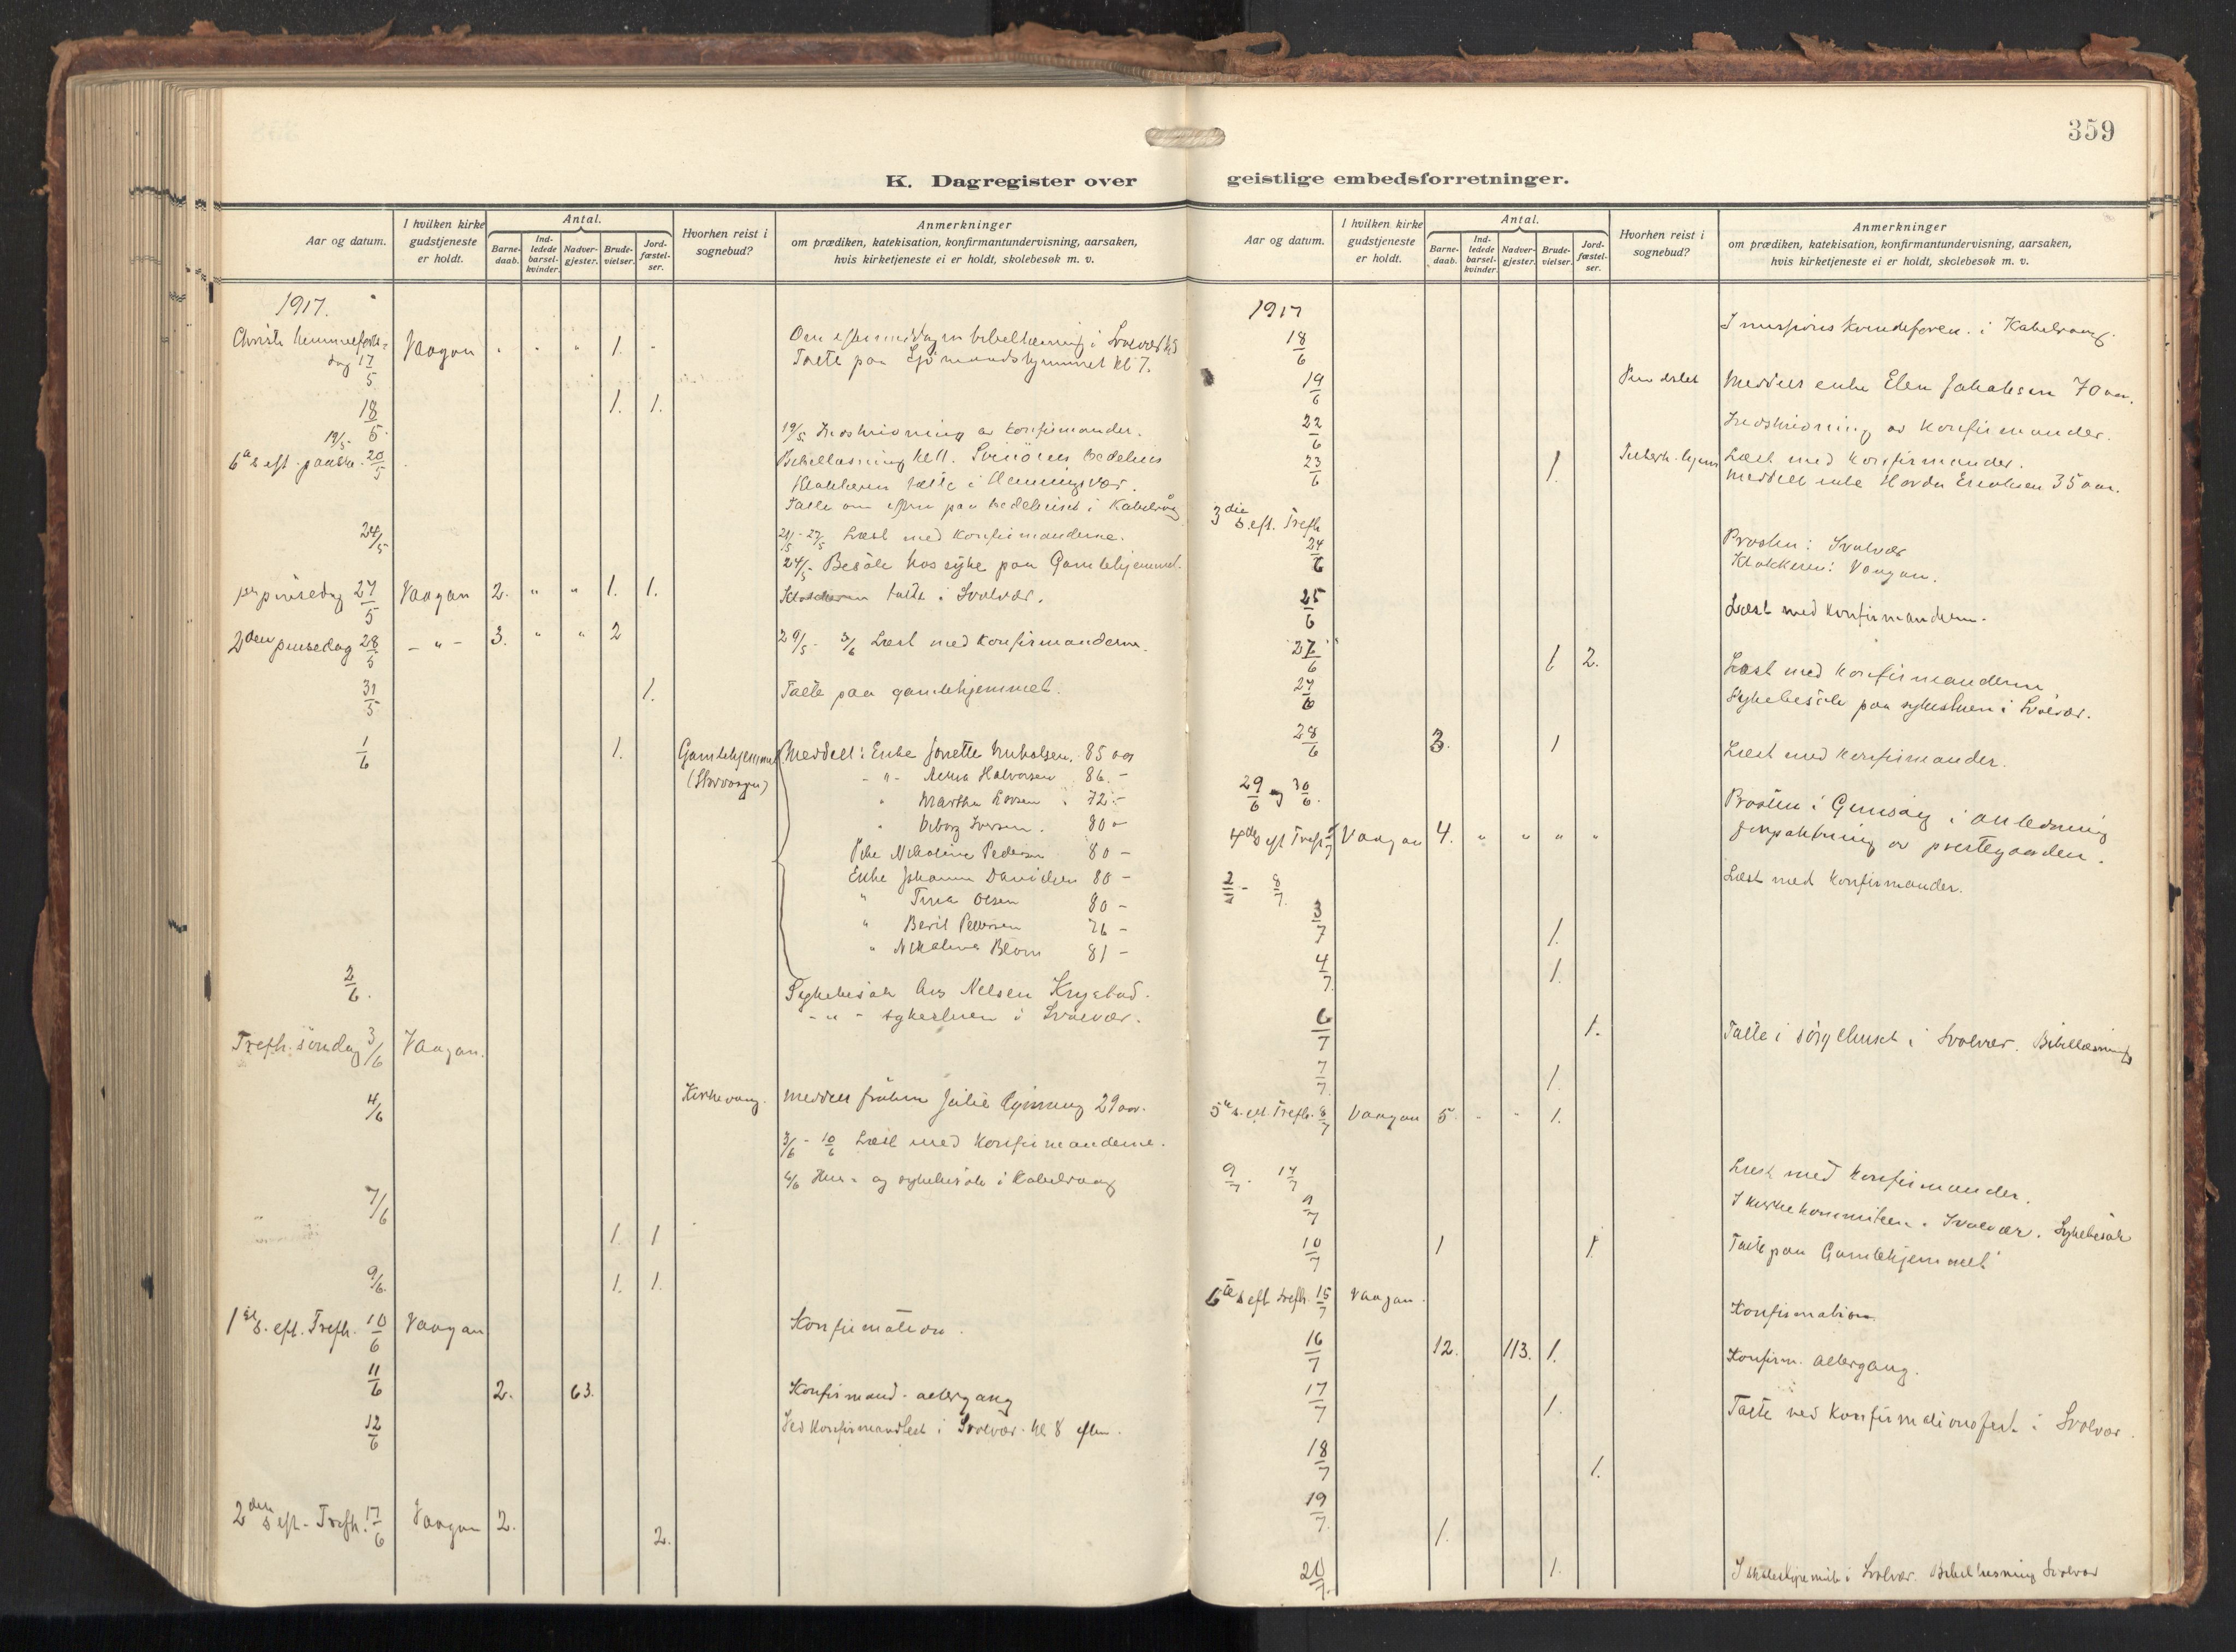 359
K. Dagregister over
geistlige embedsforretninger.
Aar og datum.
I hvilken kirke gudstjeneste er holdt.
Antal.
Barne-daab.
Ind-ledede barsel-kvinder.
Nadver-gjester.
Brude-vielser.
Jord-fæstel-ser.
Hvorhen reist i sognebud?
Anmerkninger
om prædiken, katekisation, konfirmantundervisning, aarsaken,
hvis kirketjeneste ei er holdt, skolebesøk m. v.
1917.
Christi himmelfarts-
dag 17/5 Vaagan " " " 1. "
Om eftermiddagen bibellæsning i Svolvær kl 5
Talte paa Sjömandshjemmet kl 7.
18/5 1. 1.
19/5
19/5 Indskrivning av konfirmander.
6te s. eft. paaske. 20/5
Bibellæsning kl 11. Svinöens bedehus
Klokkeren talte i Henningsvær.
Talte om efterm paa bedehuset i Kabelvåg
24/5
Læst med konfirmanderne.
24/5 Besök hos syke paa Gamlehjemmet.
1ste pinsedag 27/5 Vaagan 2. " " 1. 1.
Klokkeren talte i Svolvær.
2den pinsedag 28/5 - " - 3. " " 2
29/5 - 3/6 Læst med konfirmanderne.
31/5 1. Talte paa gamlehjemmet.
1/6 1. Gamlehjemmet
(Storvaagen)
Meddelt: Enke Jonette Nicholsen. 85 aar
- " - Anna Halvorsen 86. -
" Martha Larsen 72. -
" Iversen. 80 -
Pike Nikoline Pedersen 80 -
Enke Johanna Danielsen 80 -
" Trina Olsen 80 -
" Berit Pettersen 76 -
" Nikoline Blom 81 -
2/6.
Sykebesök hos Nelsen
- " - sykestuen i Svolvær.
Trefh. söndag 3/6 Vaagan.
4/6 Kirkevaag. Meddelt fröken Julie 29 aar.
3/6 - 10/6 Læst med konfirmanderne.
6/6 Hus- og sykebesök i Kabelvaag
7/6
1. 1
9/6. 1. 1.
1ste s. eft. Trefh. 10/6 Vaagan Konfirmation.
11/6 2. 63. Konfirmand-altergang
12/6 Ved konfirmandfest i Svolvær. kl 8 eftm.
2den s eft. Trefh. 17/6 Vaagan 2. 2.
Aar og datum.
I hvilken kirke gudstjeneste er holdt.
Antal.
Barne-daab.
Ind-ledede barsel-kvinder.
Nadver-gjester.
Brude-vielser.
Jord-fæstel-ser.
Hvorhen reist i sognebud?
Anmerkninger
om prædiken, katekisation, konfirmantundervisning, aarsaken,
hvis kirketjeneste ei er holdt, skolebesøk m. v.
1917
18/6 I missions kvindeforen. i Kabelvaag.
19/6 Meddelt enke Elen Jakobsen 70 aar.
22/6 Indskrivning av konfirmander.
23/6 1. Tuberk. hjem Læst med konfirmander.
Meddelt enke 35 aar.
3die s. eft. Trefh
24/6 Prosten: Svolvær
Klokkeren: Vaagan.
25/6 Læst med konfirmandern.
1 2. Læst med konfirmanderne
27/6 Sykebesök paa sykestuen i Svolvær.
28/6 3. 1 Læst med konfirmander.
29/6 og 30/6. Prosten i Gimsöy i anledning
forpaktning av prestegaarden.
4de s eft Trefh 1/7 Vaagan 4. " " " "
2/7 - 8/7. Læst med konfirmander.
3/7 1.
4/7. 1.
6/7 1. Talte i sörgehuset i Svolvær. Bibellæsning
7/7. 1.
5te s. eft. Trefh. 8/7 Vaagan 5. - - 1.
9/7 - 14/7 Læst med konfirmander.
9/7 I kirkekommiteen i Svolvær. Sykebesök
10/7 1 1. Talte paa Gamlehjemmet
6te s eft trefh. 15/7 Vaagan. Konfirmation
16/7 12. 113. 1. Konfirm. altergang.
17/7 1. Talte ved konfirmationsfest i Svolvær.
18/7 1.
19/7. 1.
1. I Svolvær. Bibellæsning Svolvær